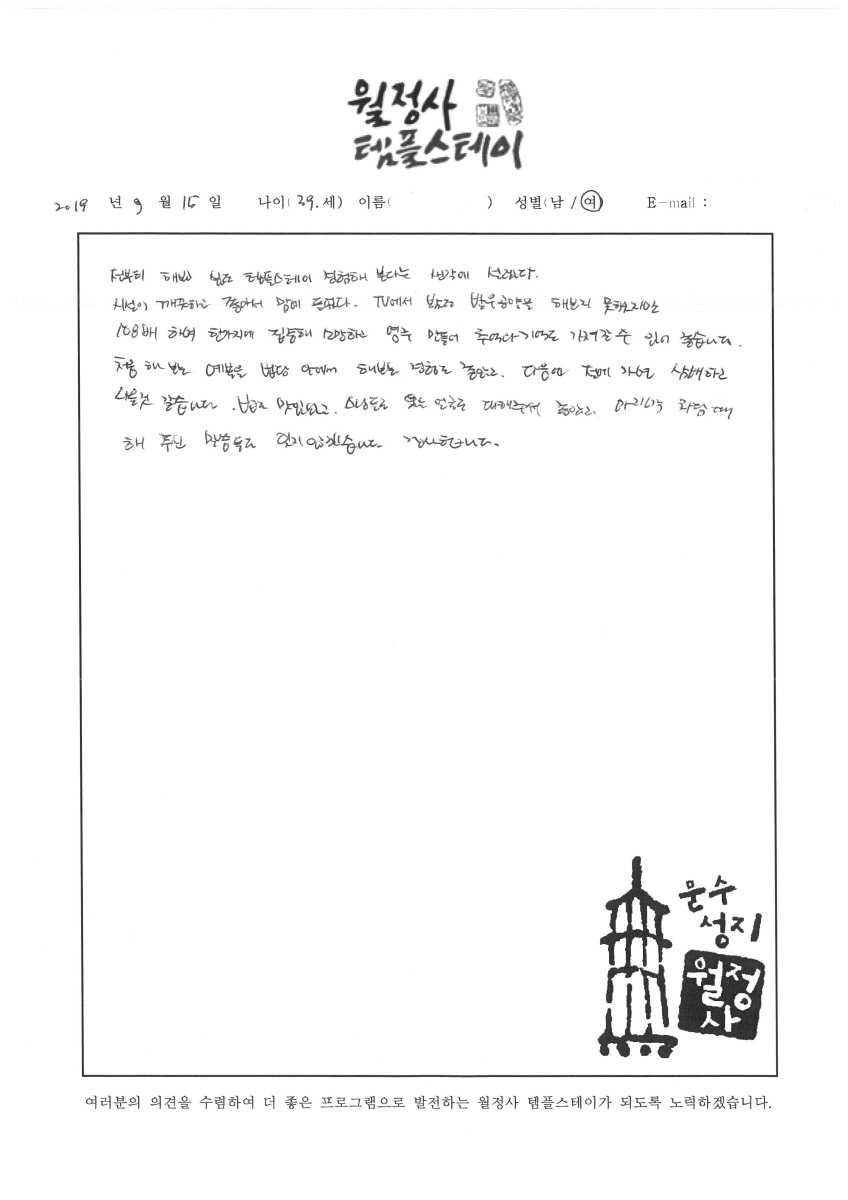 월정사
템플스테이
2019 년 9 월 15 일 나이( 39.세) 이름( ) 성별(남 / 여) E-mail :
전부터 해보고 싶던 템플스테이 경험해 본다는 생각에 설렜다.
시설이 깨끗하고 좋아서 맘에 들었다. TV에서 보던 발우공양을 해보지 못했지만
108배 하며 한가지에 집중해 소망하고 염주 만들어 추억과 기억도 가져갈 수 있어 좋습니다.
처음 해 보는 예불을 법당 안에서 해보는 경험도 좋았고. 다음엔 절에 가면 삼배하고
나올것 같습니다. 밥도 맛있었고. 웃는 얼굴로 대해주셔서 좋았고. 차담 때
해 주신 말씀들도 잊지않겠습니다. 감사합니다.
문수
성지
월정
사
여러분의 의견을 수렴하여 더 좋은 프로그램으로 발전하는 월정사 템플스테이가 되도록 노력하겠습니다.